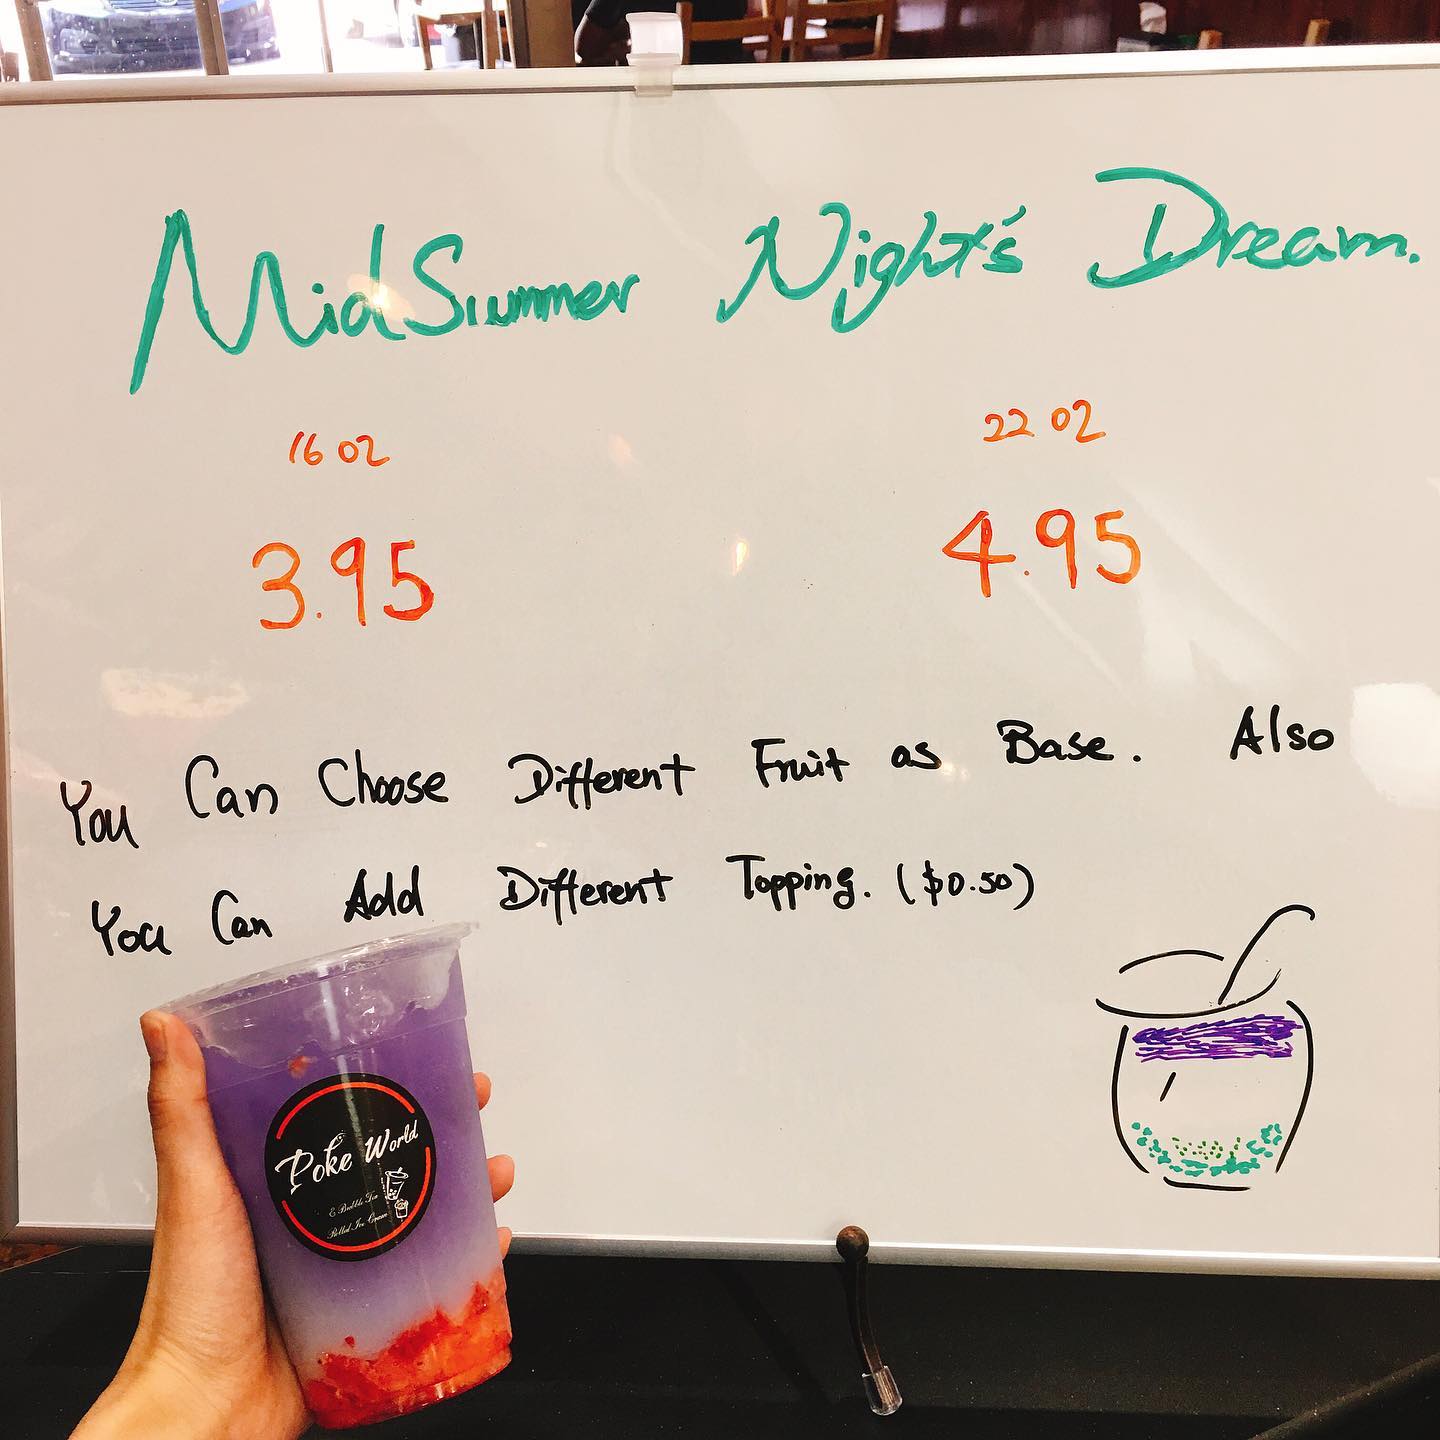 MidSummer Night's Dream.
16 oz 22 oz
3.95 4.95
You Can Choose Different Fruit as Base. Also
You Can Add Different Topping. ($0.50)
Poke World
& Bubble Tea
Rolled Ice Cream